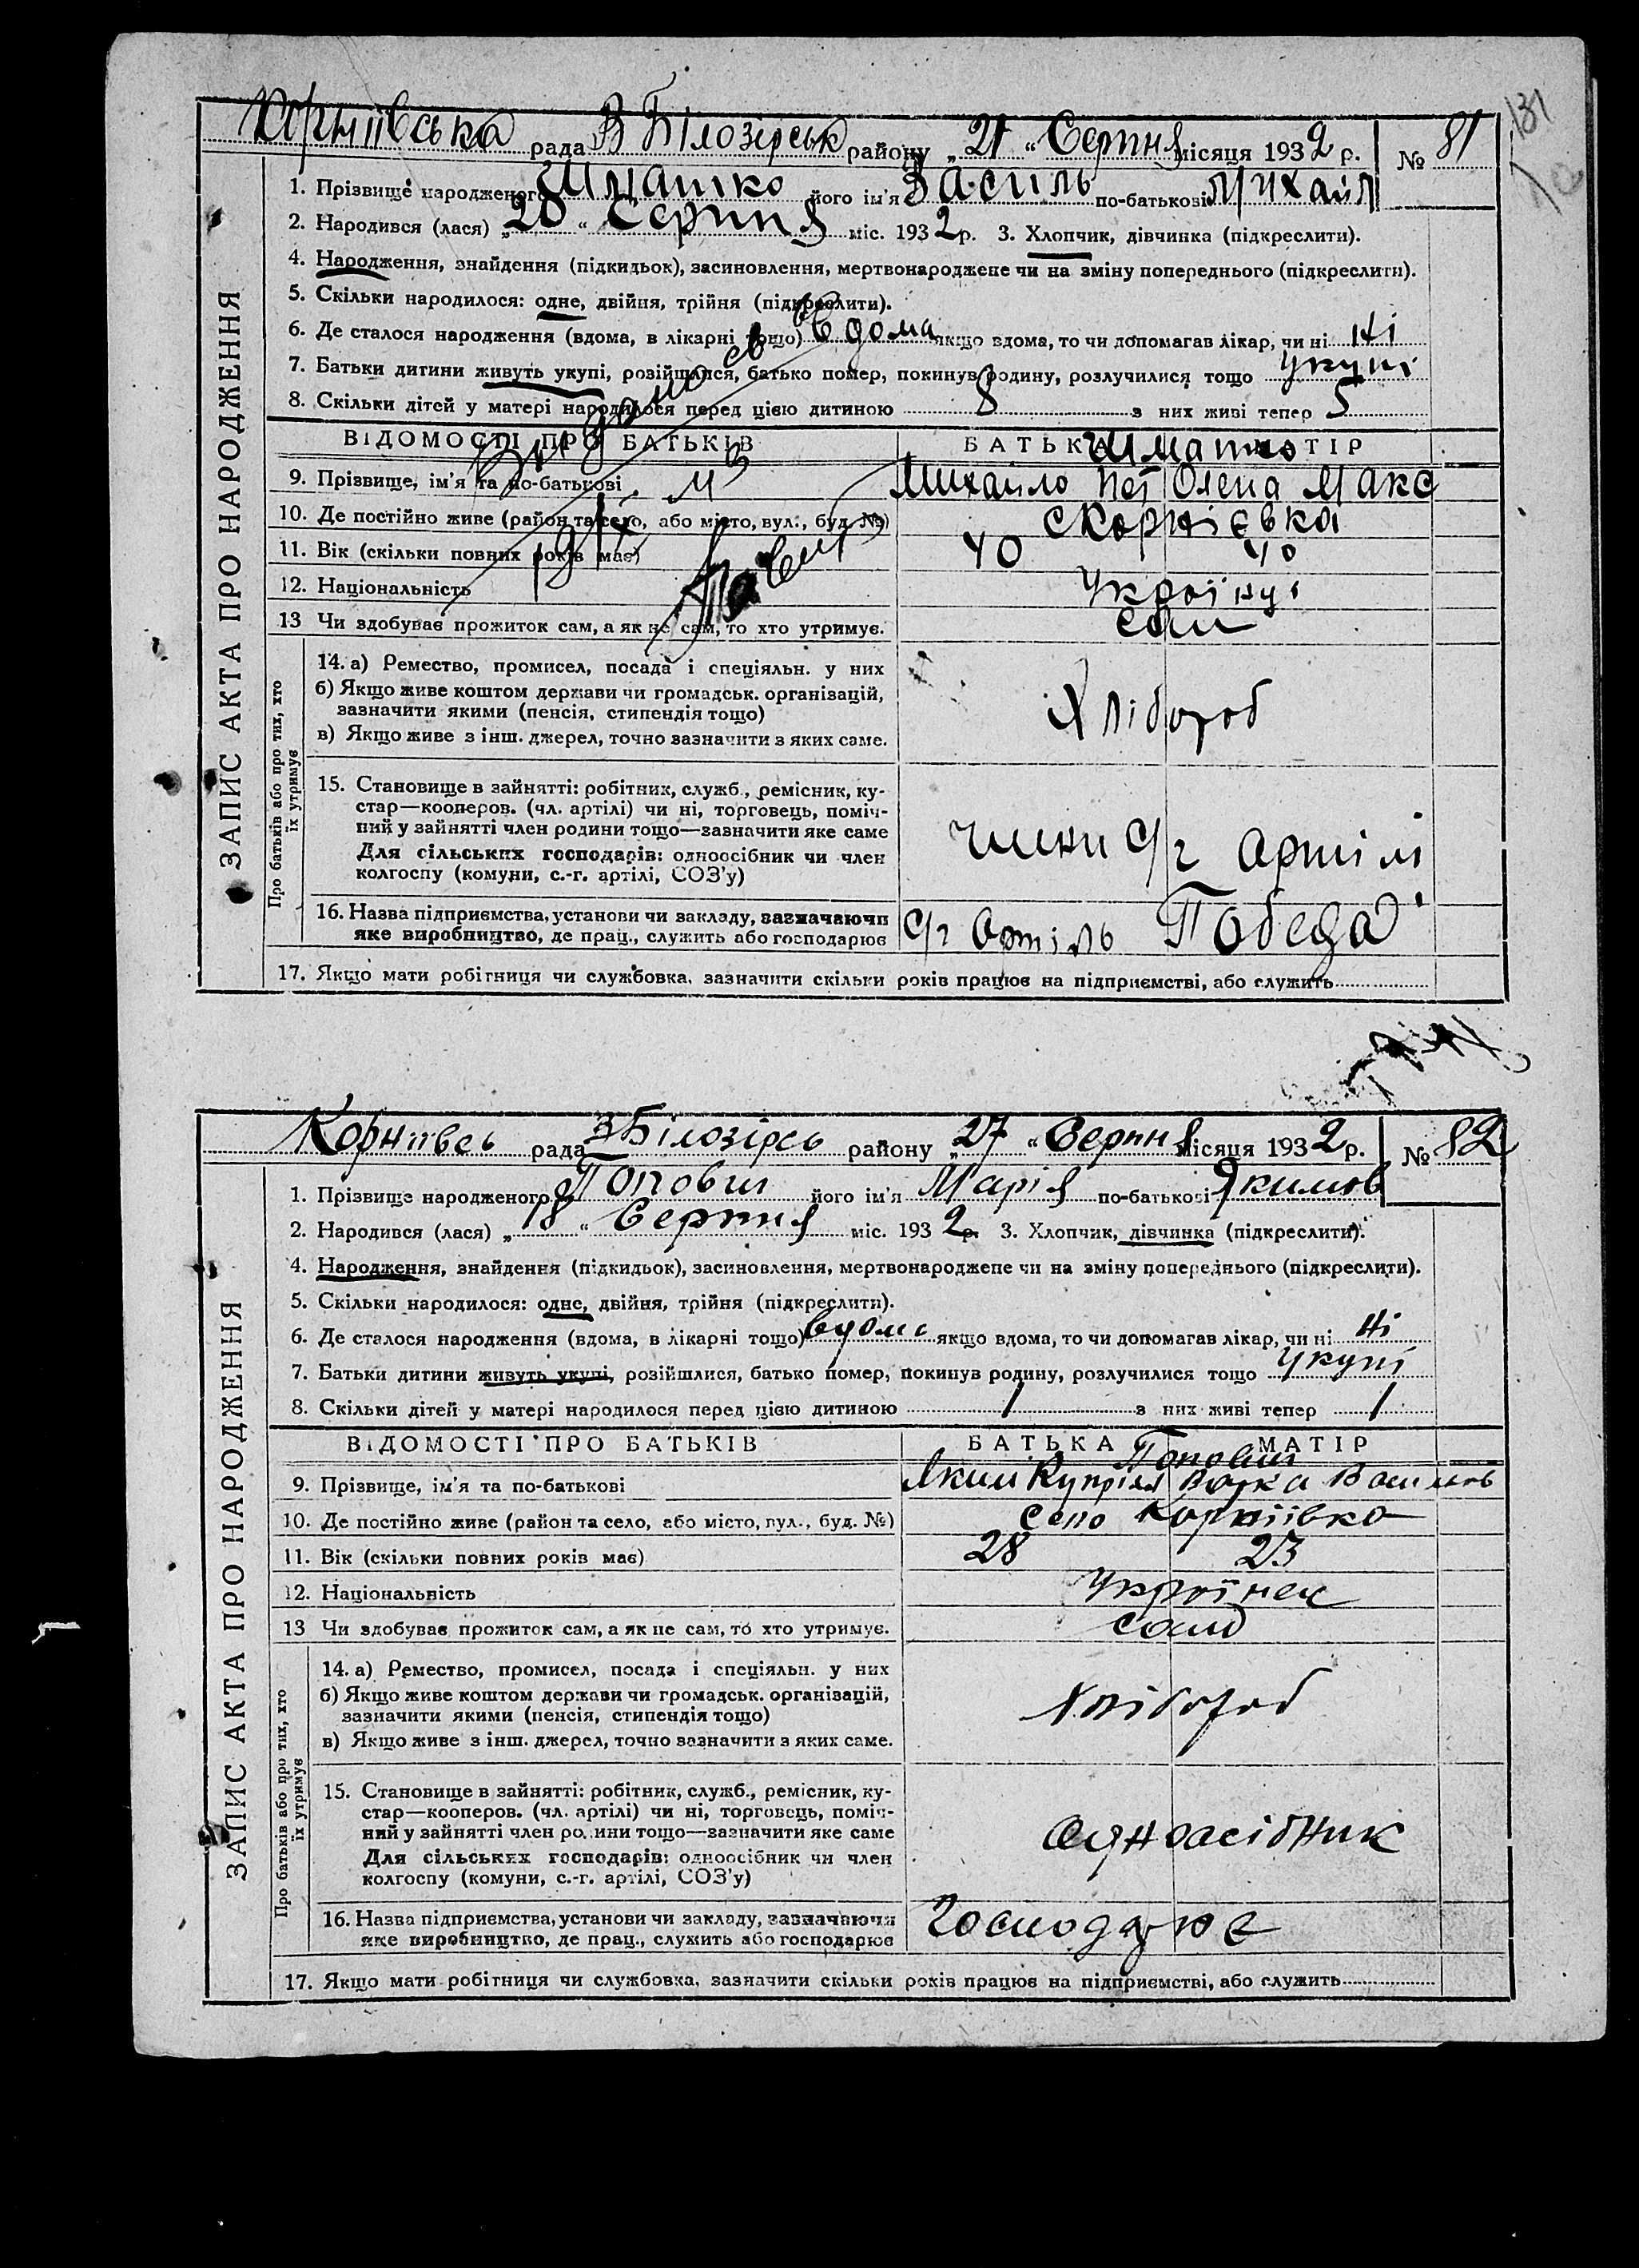 131
Корніївська рада В Білозірськ району „21“ Серпня місяця 1932 р. № 81
ЗАПИС АКТА ПРО НАРОДЖЕННЯ
1. Прізвище народженого Шматко його ім'я Василь по-батькові Михайл
2. Народився (лася) „20“ Серпня міс. 1932 р. 3. Хлопчик, дівчинка (підкреслити).
4. Народження, знайдення (підкидьок), засиновлення, мертвонароджене чи на зміну попереднього (підкреслити).
5. Скільки народилося: одне, двійня, трійня (підкреслити).
6. Де сталося народження (вдома, в лікарні тощо) вдома якщо вдома, то чи допомагав лікар, чи ні Ні
7. Батьки дитини живуть укупі, розійшлися, батько помер, покинув родину, розлучилися тощо укупі
8. Скільки дітей у матері народилося перед цією дитиною 8 з них живі тепер 5
ВІДОМОСТІ ПРО БАТЬКІВ БАТЬКА МАТІР
Шматко
9. Прізвище, ім'я та по-батькові Михайло Пет Олена Макс
10. Де постійно живе (район та село, або місто, вул., буд. №) с Корнієвка
11. Вік (скільки повних років має) 40 40
12. Національність Українці
13 Чи здобуває прожиток сам, а як не сам, то хто утримує. сам
Про батьків або про тих, хто їх утримує
14. а) Ремество, промисел, посада і спеціяльн. у них
б) Якщо живе коштом держави чи громадськ. організацій,
зазначити якими (пенсія, стипендія тощо)
Хлібороб
в) Якщо живе з інш. джерел, точно зазначити з яких саме.
15. Становище в зайнятті: робітник, служб., ремісник, ку-
стар—кооперов. (чл. артілі) чи ні, торговець, поміч-
ний у зайнятті член родини тощо—зазначити яке саме
Для сільських господарів: одноосібник чи член
колгоспу (комуни, с.-г. артілі, СОЗ'у)
члени С/г артілі
16. Назва підприємства, установи чи закладу, зазначаючи
яке виробництво, де прац., служить або господарює
С/г Артіль Победа
17. Якщо мати робітниця чи службовка, зазначити скільки років працює на підприємстві, або служить
Корніївсь рада З Білозірсь району „27“ Серпня місяця 1932 р. № 82
ЗАПИС АКТА ПРО НАРОДЖЕННЯ
1. Прізвище народженого Попович його ім'я Марія по-батькові Якимов
2. Народився (лася) „18“ Серпня міс. 1932 р. 3. Хлопчик, дівчинка (підкреслити).
4. Народження, знайдення (підкидьок), засиновлення, мертвонароджене чи на зміну попереднього (підкреслити).
5. Скільки народилося: одне, двійня, трійня (підкреслити).
6. Де сталося народження (вдома, в лікарні тощо) вдома якщо вдома, то чи допомагав лікар, чи ні Ні
7. Батьки дитини живуть укупі, розійшлися, батько помер, покинув родину, розлучилися тощо укупі
8. Скільки дітей у матері народилося перед цією дитиною 1 з них живі тепер 1
ВІДОМОСТІ ПРО БАТЬКІВ БАТЬКА МАТІР
Попович
9. Прізвище, ім'я та по-батькові Яким Купріян Варка Васильов
10. Де постійно живе (район та село, або місто, вул., буд. №) село Корніївка
11. Вік (скільки повних років має) 28 23
12. Національність Українец
13 Чи здобуває прожиток сам, а як не сам, то хто утримує. сам
Про батьків або про тих, хто їх утримує
14. а) Ремество, промисел, посада і спеціяльн. у них
б) Якщо живе коштом держави чи громадськ. організацій,
зазначити якими (пенсія, стипендія тощо)
Хлібороб
в) Якщо живе з інш. джерел, точно зазначити з яких саме.
15. Становище в зайнятті: робітник, служб., ремісник, ку-
стар—кооперов. (чл. артілі) чи ні, торговець, поміч-
ний у зайнятті член родини тощо—зазначити яке саме
Для сільських господарів: одноосібник чи член
колгоспу (комуни, с.-г. артілі, СОЗ'у)
Одноасібник
16. Назва підприємства, установи чи закладу, зазначаючи
яке виробництво, де прац., служить або господарює
Господарює
17. Якщо мати робітниця чи службовка, зазначити скільки років працює на підприємстві, або служить